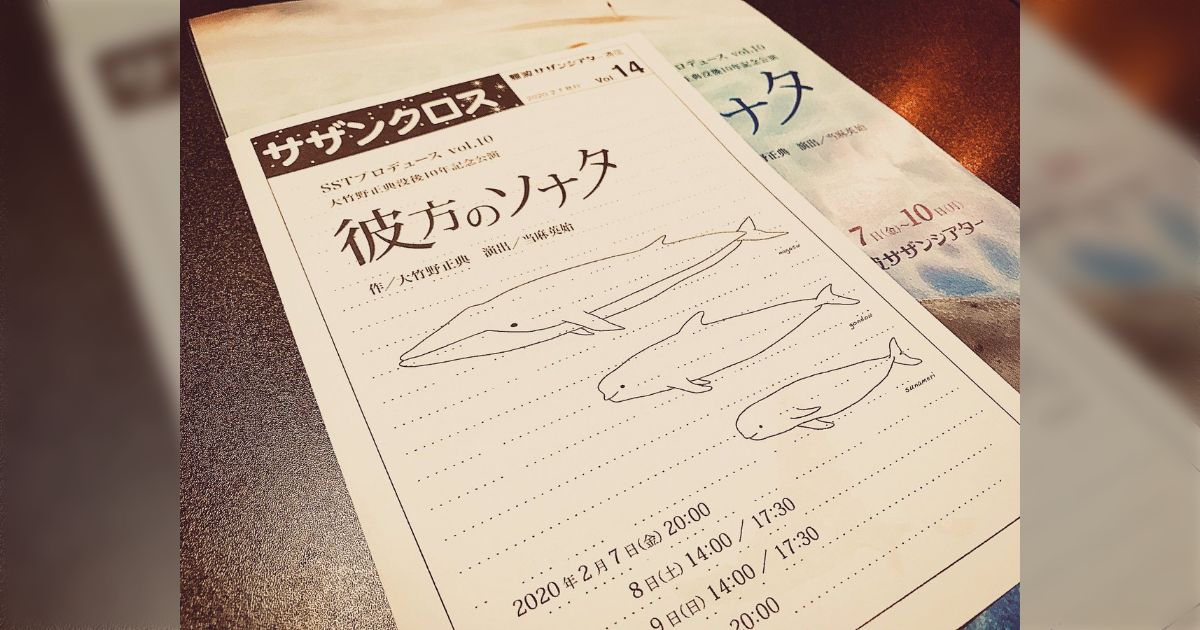 サザンクロス
難波サザンシアター通信
Vol 14
SSTプロデュース vol.10
大竹野正典没後10年記念公演
彼方のソナタ
作/大竹野正典 演出/当麻英始
nagasu
gondou
sunameri
2020年2月7日(金) 20:00
8日(土) 14:00 / 17:30
9日(日) 14:00 / 17:30
20:00
ロデュース vol.10
正典没後10年記念公演
ナタ
正典 演出/当麻英始
7日(金)~10日(月)
波サザンシアター